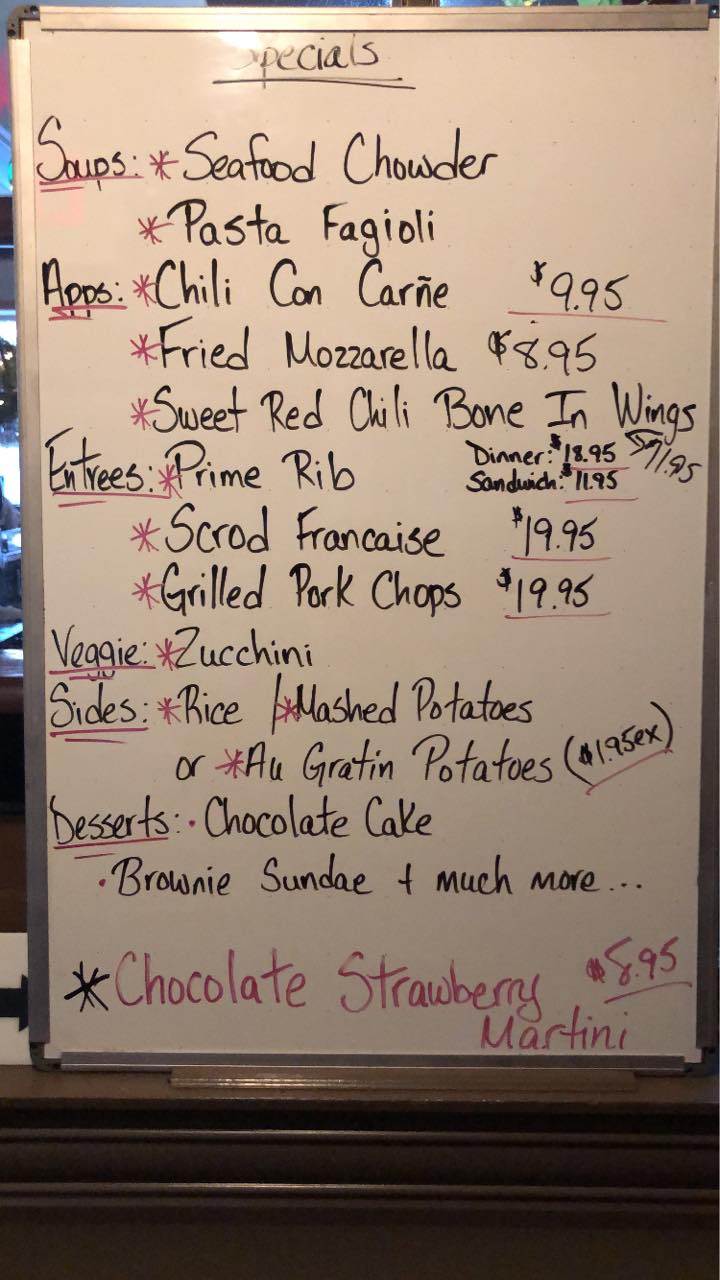 Specials
Soups: * Seafood Chowder
* Pasta Fagioli
Apps: * Chili Con Carñe $9.95
* Fried Mozzarella $8.95
* Sweet Red Chili Bone In Wings
$11.95
Entrees: * Prime Rib Dinner: $18.95
Sandwich: $11.95
* Scrod Francaise $19.95
* Grilled Pork Chops $19.95
Veggie: * Zucchini
Sides: * Rice / * Mashed Potatoes
or * Au Gratin Potatoes ($1.95ex)
Desserts: · Chocolate Cake
· Brownie Sundae + much more...
* Chocolate Strawberry $8.95
Martini